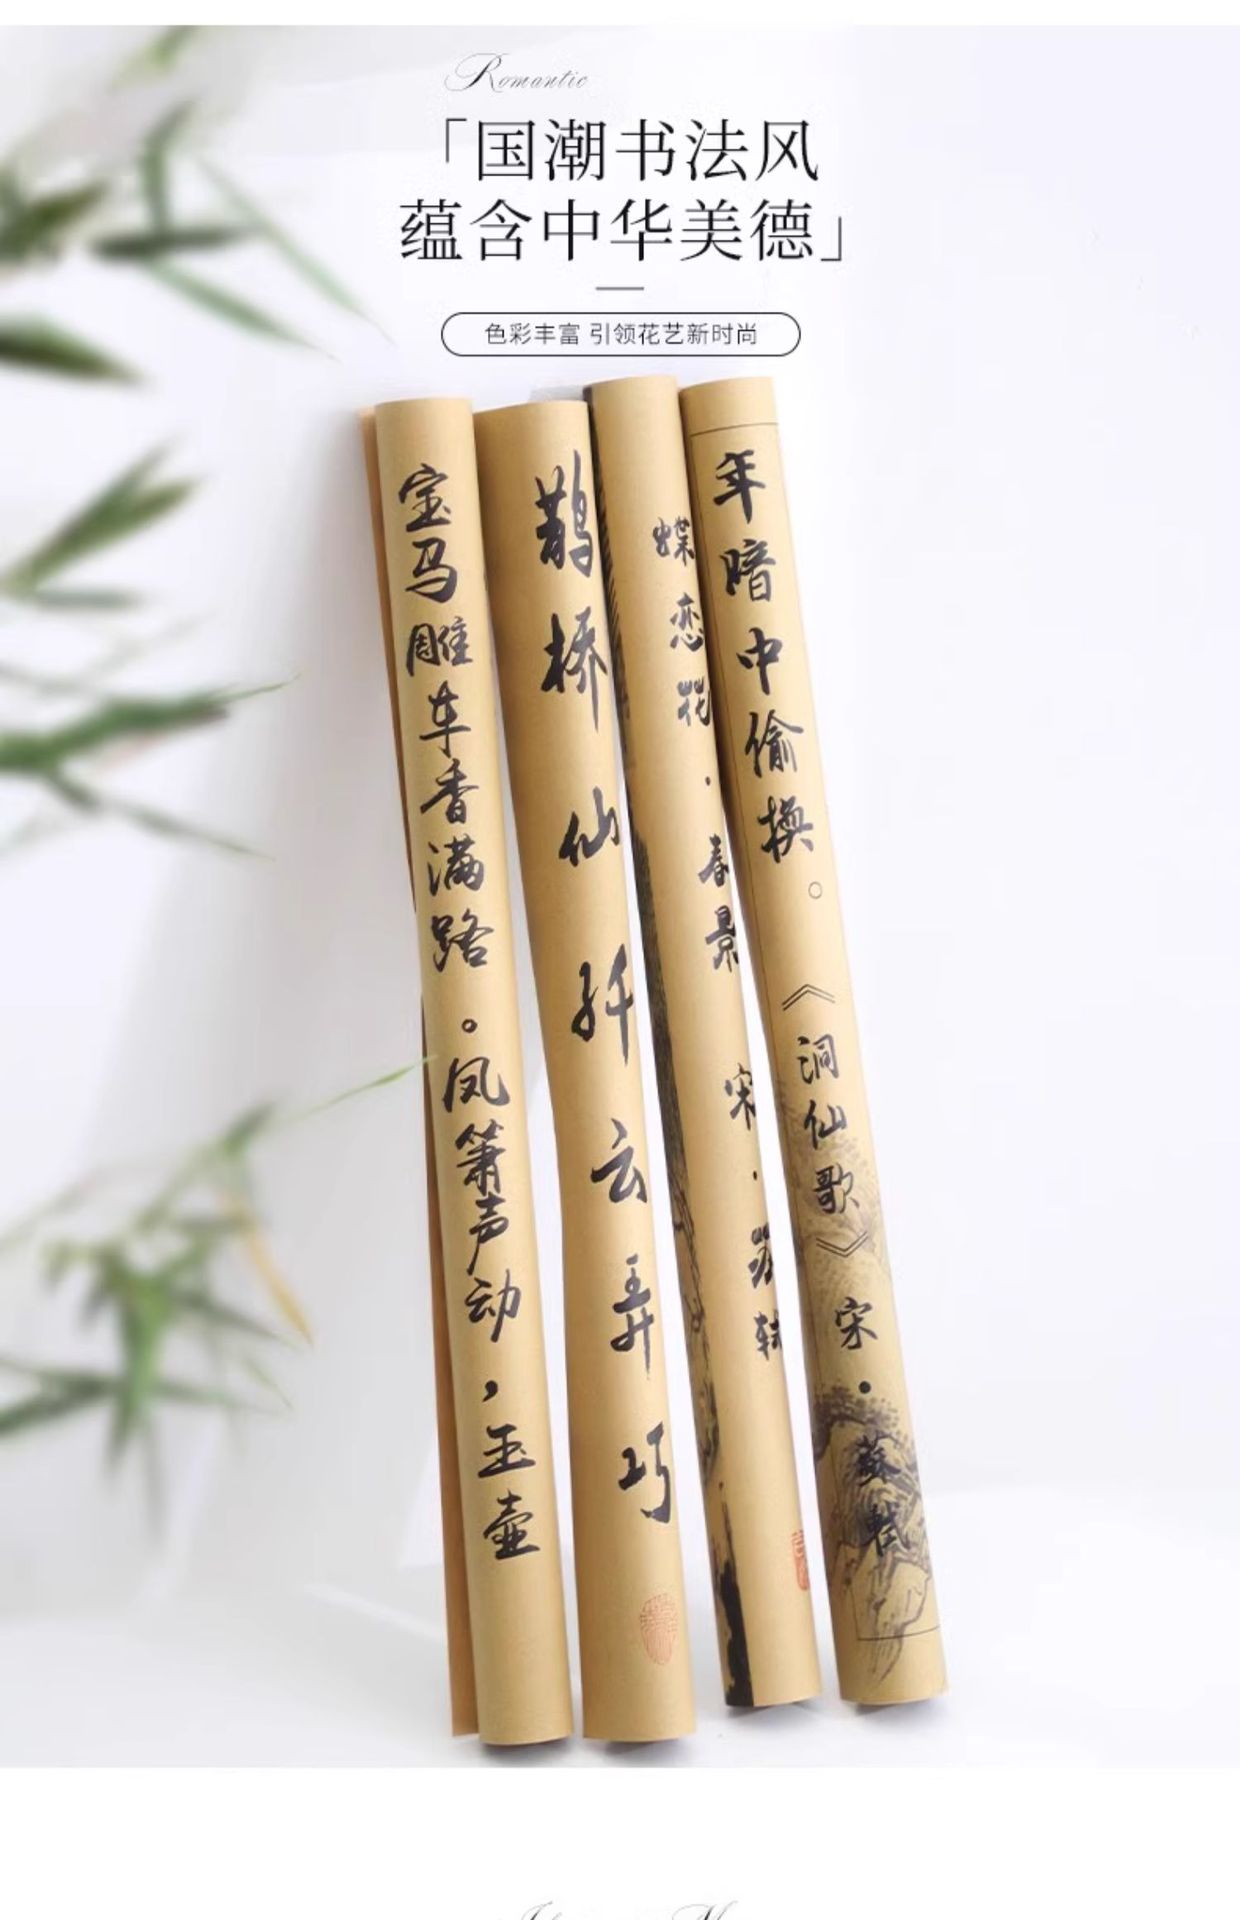 Romantic
「国潮书法风
蕴含中华美德」
色彩丰富 引领花艺新时尚
宝马雕车香满路。凤箫声动,玉壶
鹊桥仙纤云弄巧
蝶恋花·春景 宋·苏轼
年暗中偷换。《洞仙歌》宋·蘇軾